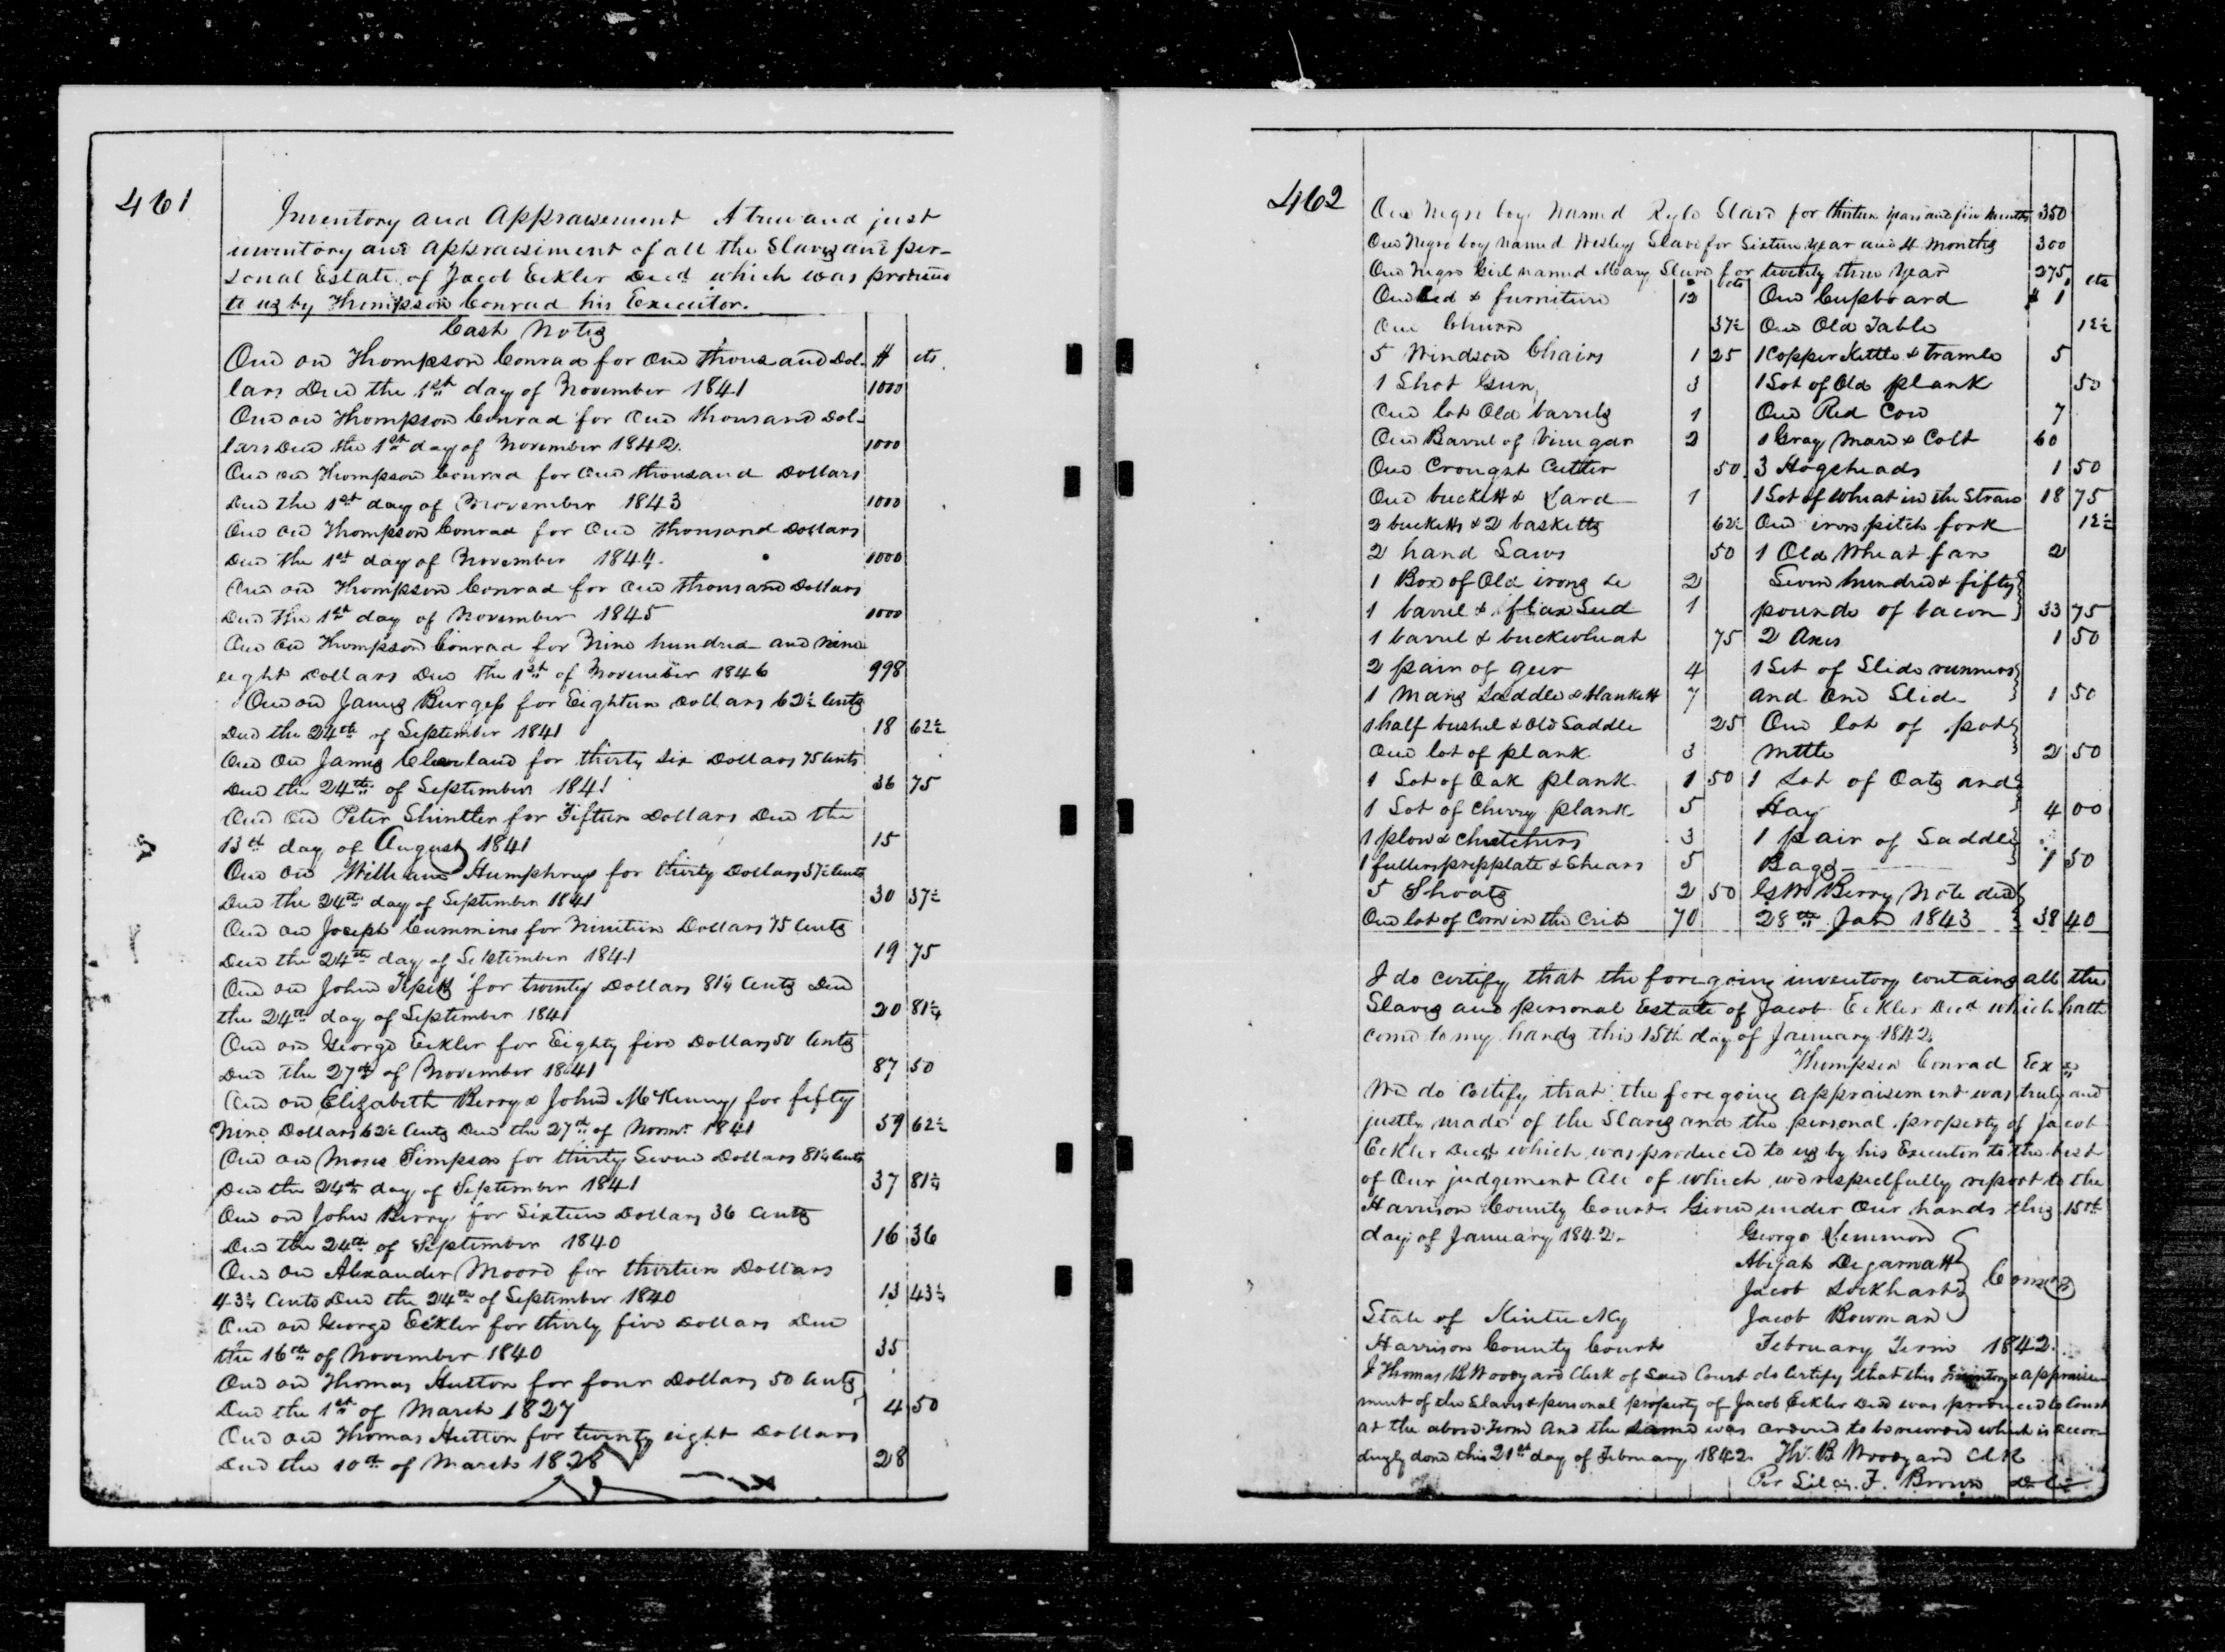 461
Inventory and Appraisement A true and just
inventory and appraisiment of all the Slaves and per-
sonal Estate of Jacob Eckler Decd which was produced
to us by Thompson Conrad his Executor.
Cash Notes
One on Thompson Conrad for One thousand Dol- $ cts.
lars Due the 1st day of November 1841 1000
One on Thompson Conrad for One thousand Dol-
lars Due the 1st day of November 1842. 1000
One on Thompson Conrad for One thousand Dollars
Due the 1st day of November 1843 1000
One on Thompson Conrad for One thousand Dollars
Due the 1st day of November 1844. 1000
One on Thompson Conrad for One thousand Dollars
Due the 1st day of November 1845 1000
One on Thompson Conrad for Nine hundred and Nine
eight Dollars Due the 1st of November 1846 998
One on James Burgess for Eighteen Dollars 62½ Cents
Due the 24th of September 1841 18 62½
One On James Cleaveland for thirty Six Dollars 75 Cents
Due the 24th of September 1841 36 75
One on Peter Shintler for Fifteen Dollars Due the
13th day of August 1841 15
One on William Humphreys for thirty Dollars 37½ Cents
Due the 24th day of September 1841 30 37½
One on Joseph Cummins for Nineteen Dollars 75 Cents
Due the 24th day of September 1841 19 75
One on John for twenty Dollars 81¼ Cents Due
the 24th day of September 1841 20 81¼
One on George Eckler for Eighty five Dollars 50 Cents
Due the 27th of November 1841 87 50
One on Elizabeth Berry & John McKenney for fifty
Nine Dollars 62½ Cents Due the 27th of Novmr 1841 59 62½
One on Moses Simpson for thirty Seven Dollars 81¼ Cents
Due the 24th day of September 1841 37 81¼
One on John Berry for Sixteen Dollars 36 Cents
Due the 24th of September 1840 16 36
One on Alexander Moore for thirteen Dollars
43¾ Cents Due the 24th of September 1840 13 43¾
One on George Eckler for thirty five Dollars Due
the 16th of November 1840 35
One on Thomas Hutton for four Dollars 50 Cents
Due the 1st of March 1827 4 50
One on Thomas Hutton for twenty eight Dollars
Due the 10th of March 1828 28
462
One Negro boy Named Rylo Slave for thirteen years and five Months 350
One Negro boy named Wesley Slave for Sixteen year and 4 Months 300
One Negro Girl named Mary Slave for twenty three Year 275
One Bed & furniture 12 One Cupboard $ 1
One Churn 37½ One Old Table 12½
5 Windsor Chairs 1 25 1 Copper Kettle & tramle 5
1 Shot Gun 3 1 Lot of Old plank 50
One lot Old barrels 1 One Red Cow 7
One Barrel of Vinegar 2 1 Gray Mare & Colt 60
One Crought Cutter 50 3 Hogsheads 1 50
One buckett & Lard 1 1 Lot of wheat in the Straw 18 75
2 bucketts & 2 basketts 62½ One iron pitch fork 12½
2 hand Saws 50 1 Old Wheat fan 2
1 Box of Old irons &c 2 Seven hundred & fifty
1 barrel & flax Seed 1 pounds of bacon 33 75
1 barrel & buckwheat 75 2 Axes 1 50
2 pair of geer 4 1 Set of Slide runners
1 Mans Saddle & blankett 7 and One Slide 1 50
1 half bushel & Old Saddle 25 One lot of pot
One lot of plank 3 mttle 2 50
1 Lot of Oak plank 1 50 1 Lot of Oats and
1 Lot of cherry plank 5 Hay 4 00
1 plow & 3 1 pair of Saddle
1 fullers prepplate & Shears 5 Bags 1 50
5 Shoats 2 50 G W Berry Note due
One lot of Corn in the Crib 70 28th Jan 1843 38 40
I do certify that the foregoing inventory contains all the
Slaves and personal Estate of Jacob Eckler Decd which hath
come to my hands this 15th day of January 1842.
Thompson Conrad Exr
We do certify that the foregoing appraisement was truly and
justly made of the Slaves and the personal property of Jacob
Eckler Decd which was produced to us by his Executor to the best
of Our judgement All of which we respectfully report to the
Harrison County Court. Given under Our hands this 15th
day of January 1842. George Lemmon
Abijah Degarnatt
Jacob Lockhart Comrs
State of Kentucky Jacob Bowman
Harrison County Court February Term 1842.
I Thomas B Woodyard Clerk of Said Court do Certify that this Inventory & appraise-
ment of the Slaves & personal property of Jacob Eckler Decd was produced to Court
at the above Term And the Same was ordered to be recorded which is accor-
dingly done this 21st day of February 1842. Th. B Woodyard Clk
Per Silas. F. Brown D C